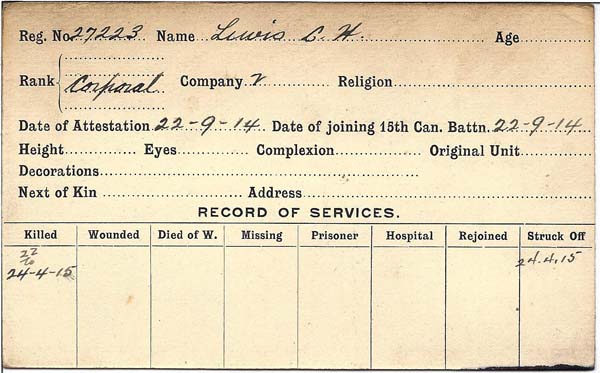 Reg. No. 27223 Name Lewis C. H Age
Rank Corporal Company Religion
Date of Attestation 22-9-14 Date of joining 15th Can. Battn. 22-9-14
Height Eyes Complexion Original Unit
Decorations
Next of Kin Address
RECORD OF SERVICES.
Killed Wounded Died of W. Missing Prisoner Hospital Rejoined Struck Off
22
to
24-4-15 24.4.15